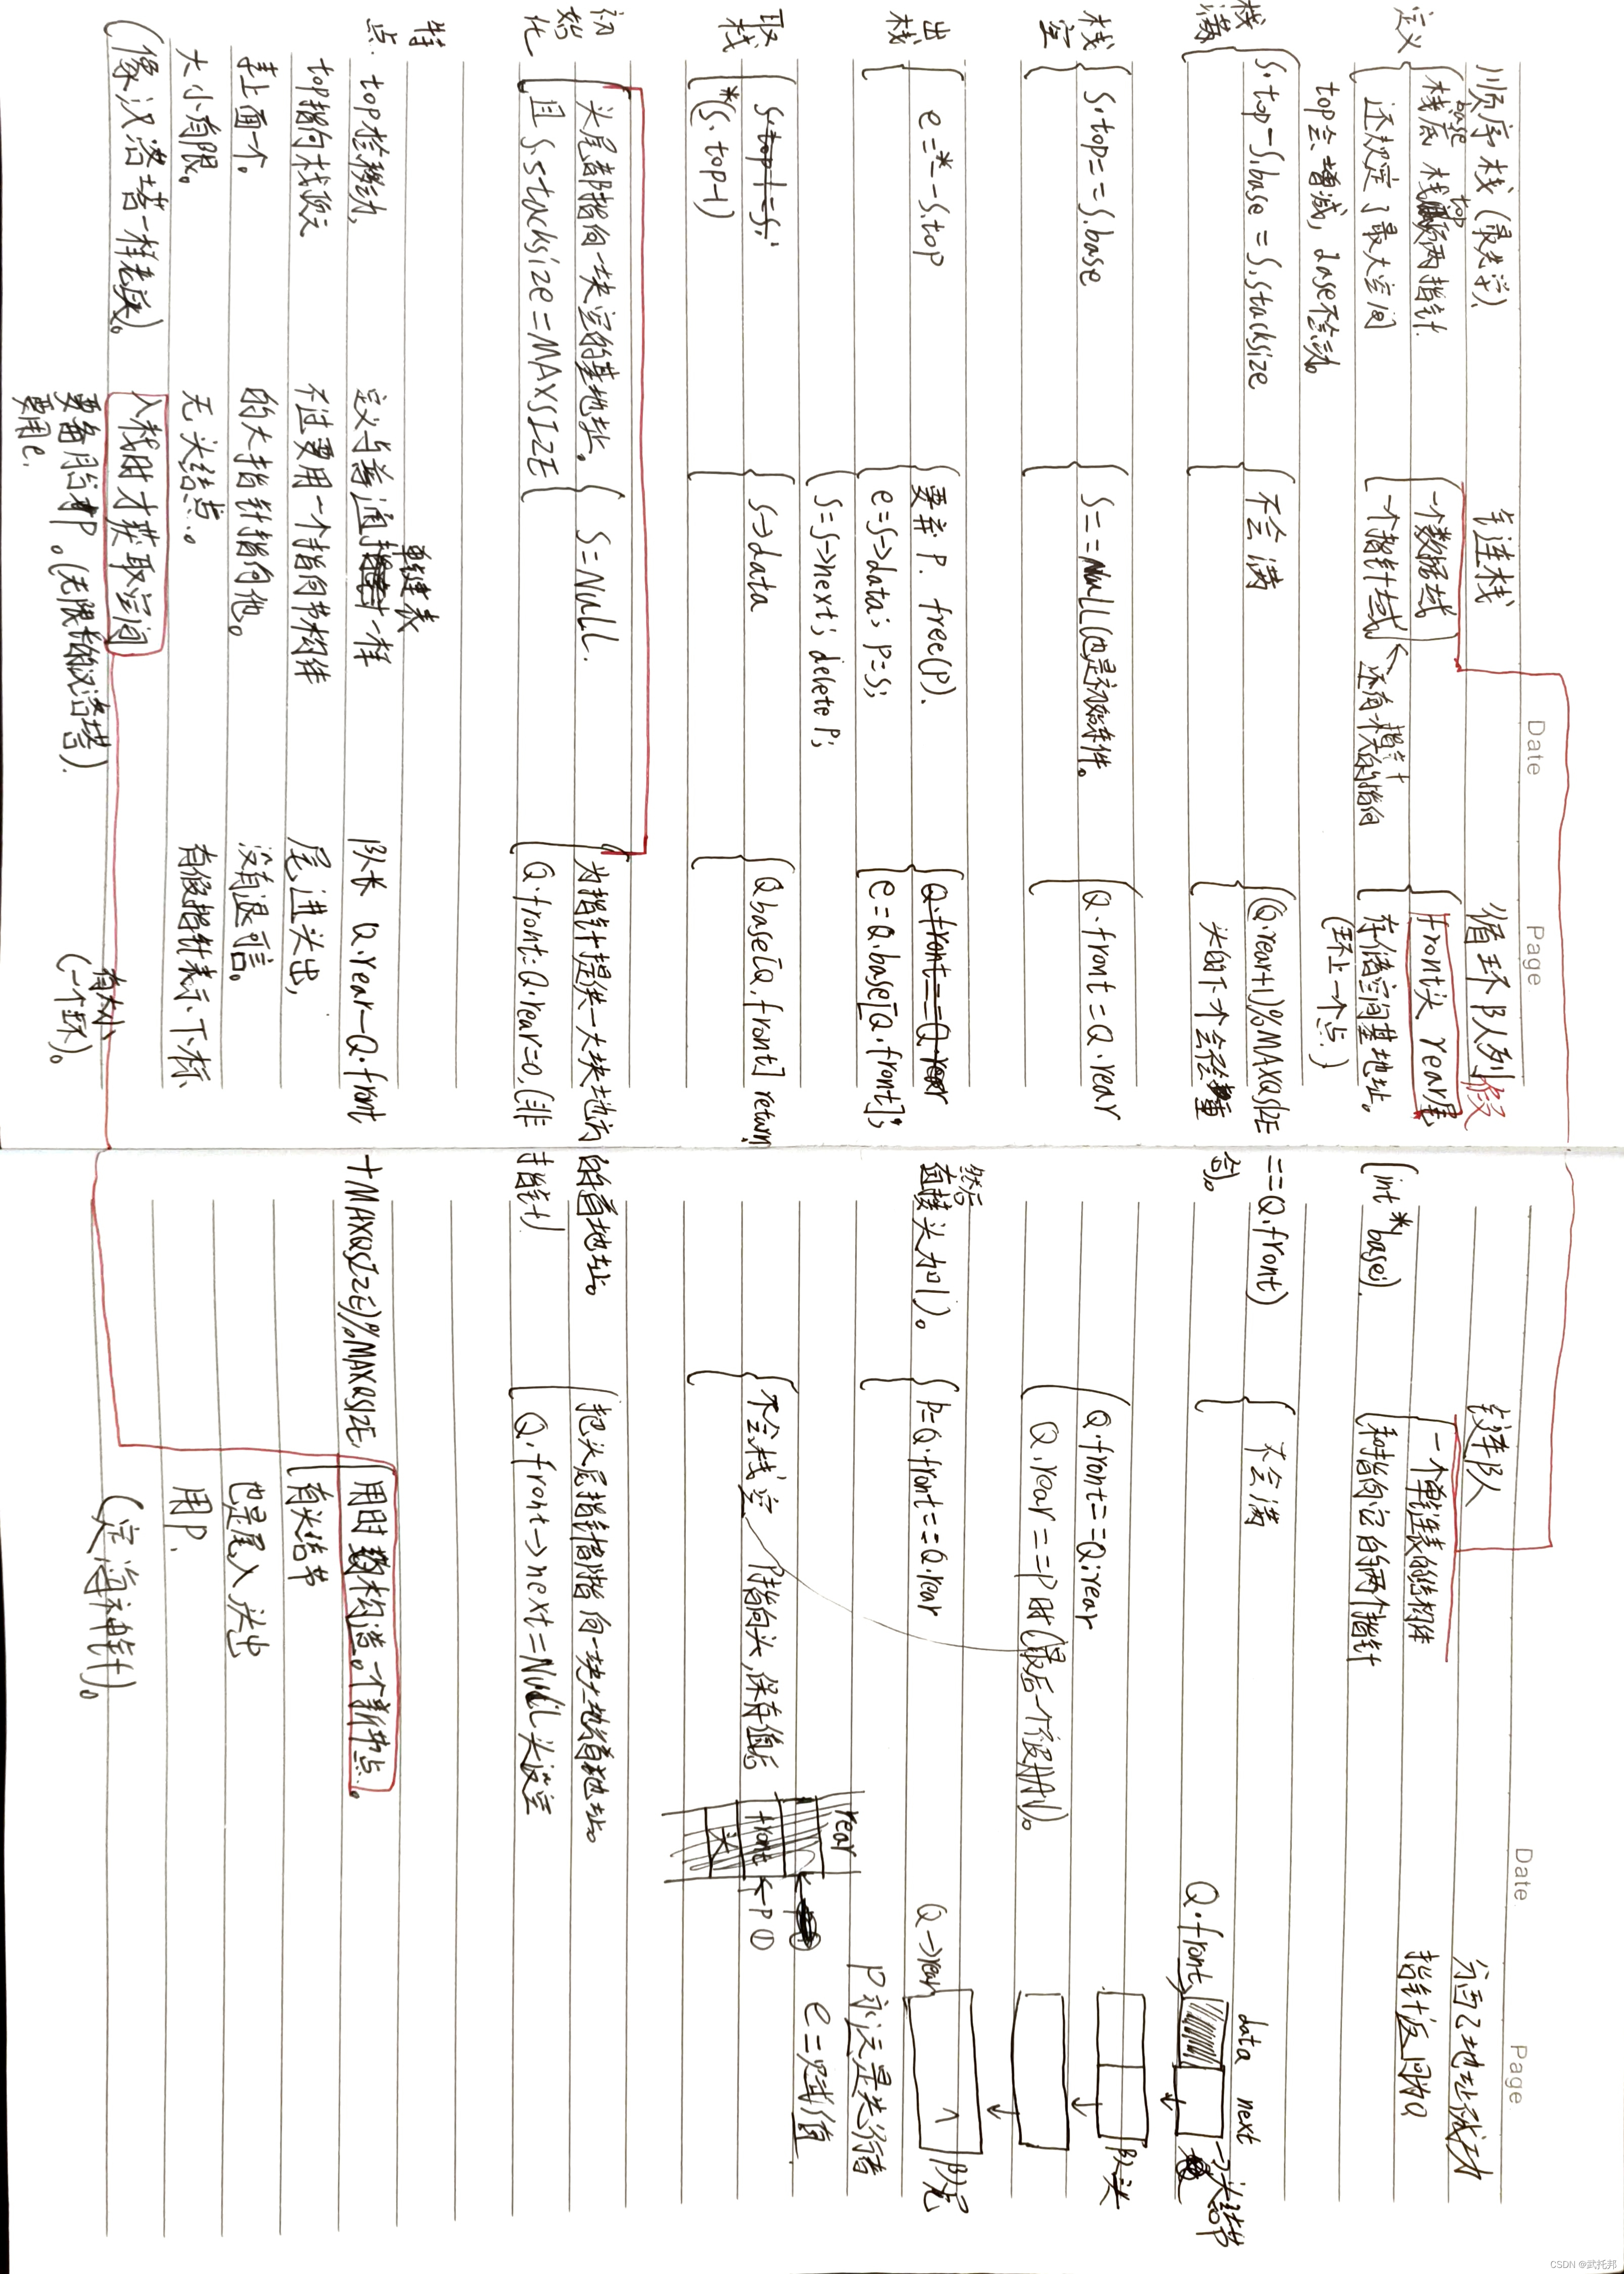 Date
Page
顺序栈(最先学)
链连栈
循环队列
链队
定义
base top
栈底 栈顶两指针.
还规定了最大空间
一个数据域
一个指针域
还有一指针
front头 rear尾
假
存储空间基地址。
(int *base).
(环上一个点.)
一个单链表的结构体
和指向它的两个指针
top会增减, base不会动。
栈满
S.top-S.base=S.stacksize
不会满
(Q.rear+1)%MAXQSIZE
==Q.front)
不会满
栈空
S.top==S.base
S==NULL(也是初始条件。
Q.front=Q.rear
Q.front==Q.rear
Q.rear==P时(最后一个被删)。
出栈
e=*--S.top
要弃P. free(P).
e=S->data; P=S;
S=S->next; delete P;
Q.front==Q.rear
e=Q.base[Q.front];
然后
直接头加1)。
P=Q.front==Q.rear
取栈
S.top-1=S;
*(S.top-1)
S->data
Q.base[Q.front] return
不会栈空
P指向头,保存值
初始化
头尾都指向一块空的基地址。
且S.stacksize=MAXSIZE
S=NULL.
为指针提供一大块地方的首地址。
Q.front=Q.rear=0,(非指针)
把头尾指针都指向一块地址首地址。
Q.front->next=NULL 头设空
特点.
top抬移动,
top指向栈顶元
素上面一个。
大小有限。
(像汉诺塔一样老汉)。
单链表
定义与普通一样
不过要用一个指向节构体
的大指针指向他。
无头结点。
入栈时才获取空间
要备用P。(无限长的汉诺塔).
要用e.
队长 Q.rear-Q.front
+MAXQSIZE)%MAXQSIZE.
尾进头出,
没有退信。
有假指针表示下标
有大小
(一个环)。
用时构造一个新节点。
有头结节
也是尾入头出
用P.
(定海神针)。
Date
Page
指针返回为Q
Q.front
data next
头结节
队头
Q->rear
队尾
P永远是先行者
e=赋值
rear
front
头
P①
CSDN @武托邦